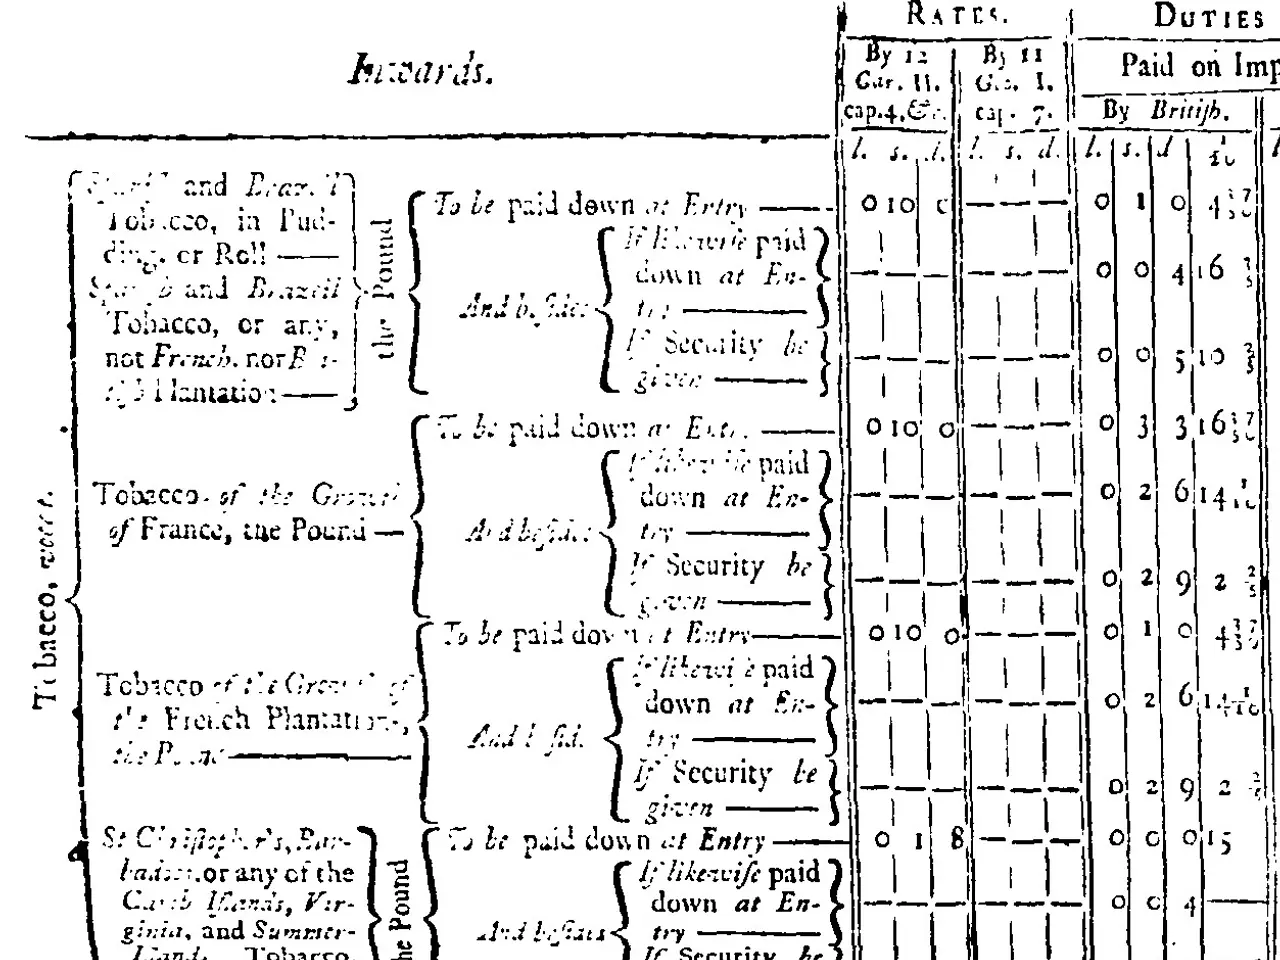 RATES.
DUTIES
Inwards.
By 12
Car. II.
cap.4,&c.
By 11
Geo. I.
cap. 7.
Paid on Imp
By Britiſh.
l. s. d. l. s. d. l. s. d 1/20
Tobacco, vocat.
Spaniſh and Brazil
Tobacco, in Pud-
ding, or Roll
Spaniſh and Brazil
Tobacco, or any,
not French, nor Bri-
tiſh Plantation
the Pound
To be paid down at Entry 0 10 0 0 1 0 4
And beſides
If likewiſe paid
down at En- 0 0 4 16
try
If Security be
given 0 0 5 10 2/5
To be paid down at Entry 0 10 0 0 3 3 16
Tobacco of the Growth
of France, the Pound
And beſides
If likewiſe paid
down at En- 0 2 6 14
try
If Security be
given 0 2 9 2 2/5
To be paid down at Entry 0 10 0 0 1 0 4
Tobacco of the Growth of
the French Plantations,
the Pound
And beſides
If likewiſe paid
down at En- 0 2 6 14
try
If Security be
given 0 2 9 2
St Chriſtopher's, Bar-
badoes, or any of the
Carib Iſlands, Vir-
ginia, and Summer-
Iſlands, Tobacco,
the Pound
To be paid down at Entry 0 1 8 0 0 0 15
And beſides
If likewiſe paid
down at En- 0 0 4
try
If Security be